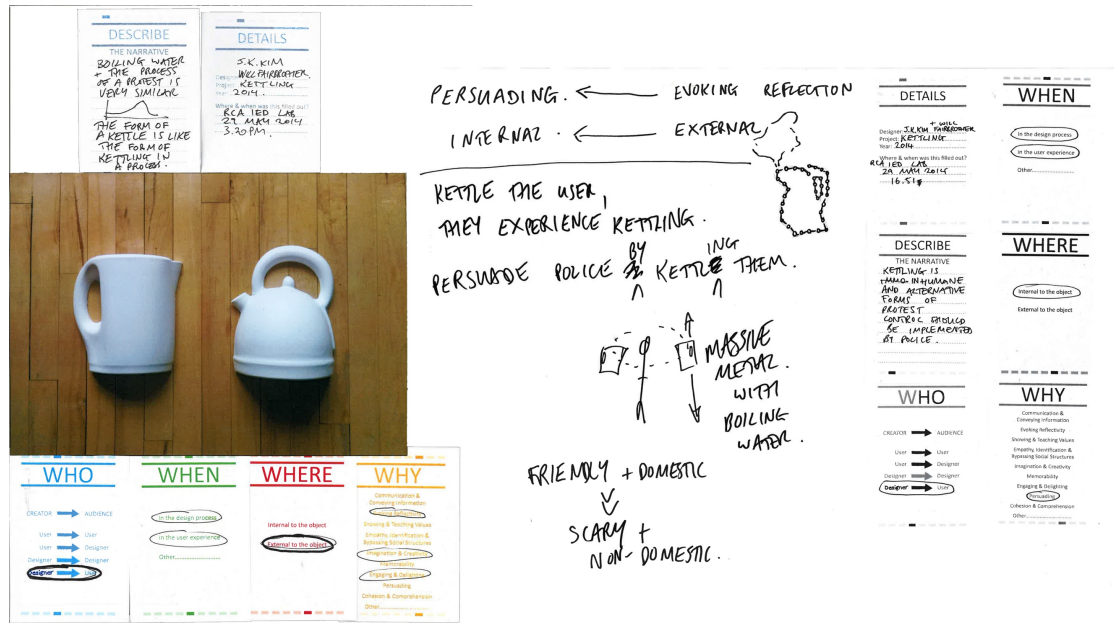 DESCRIBE
THE NARRATIVE
BOILING WATER
+ THE PROCESS
OF A PROTEST IS
VERY SIMILAR
THE FORM OF
A KETTLE IS LIKE
THE FORM OF
KETTLING IN
A PROCESS.
DETAILS
S.K.KIM
Designer WILL FAIRBROTHER.
Project: KETTLING
Year: 2014.
Where & when was this filled out?
RCA IED LAB
29 MAY 2014
3.20PM.
WHO
CREATOR AUDIENCE
User User
User Designer
Designer Designer
Designer User
WHEN
In the design process
In the user experience
Other
WHERE
Internal to the object
External to the object
WHY
Communication &
Conveying Information
Evoking Reflectivity
Showing & Teaching Values
Empathy, Identification &
Bypassing Social Structures
Imagination & Creativity
Memorability
Engaging & Delighting
Persuading
Cohesion & Comprehension
Other
PERSUADING. ← EVOKING REFLECTION
INTERNAL. ← EXTERNAL
KETTLE THE USER,
THEY EXPERIENCE KETTLING.
PERSUADE POLICE BY KETTLING THEM.
MASSIVE
METAL.
WITH
BOILING
WATER.
FRIENDLY + DOMESTIC
SCARY +
NON-DOMESTIC.
DETAILS
+ WILL
Designer J.K.KIM FAIRBROTHER
Project: KETTLING
Year: 2014
Where & when was this filled out?
RCA IED LAB
29 MAY 2014
16.51
WHEN
In the design process
In the user experience
Other
DESCRIBE
THE NARRATIVE
KETTLING IS
INHUMANE
AND ALTERNATIVE
FORMS OF
PROTEST
CONTROL SHOULD
BE IMPLEMENTED
BY POLICE.
WHERE
Internal to the object
External to the object
WHO
CREATOR AUDIENCE
User User
User Designer
Designer Designer
Designer User
WHY
Communication &
Conveying Information
Evoking Reflectivity
Showing & Teaching Values
Empathy, Identification &
Bypassing Social Structures
Imagination & Creativity
Memorability
Engaging & Delighting
Persuading
Cohesion & Comprehension
Other